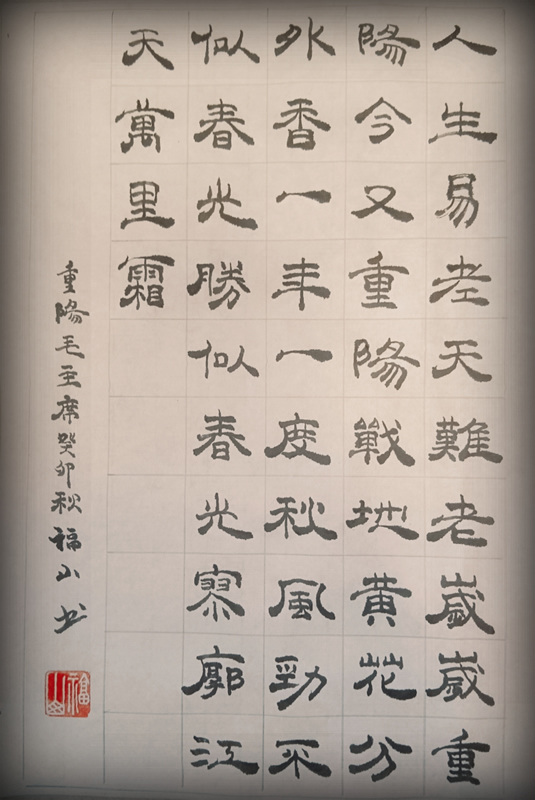 人生易老天難老歲歲重
陽今又重陽戰地黄花分
外香一年一度秋風勁不
似春光勝似春光寥廓江
天萬里霜
重陽毛主席癸卯秋福山书
福山